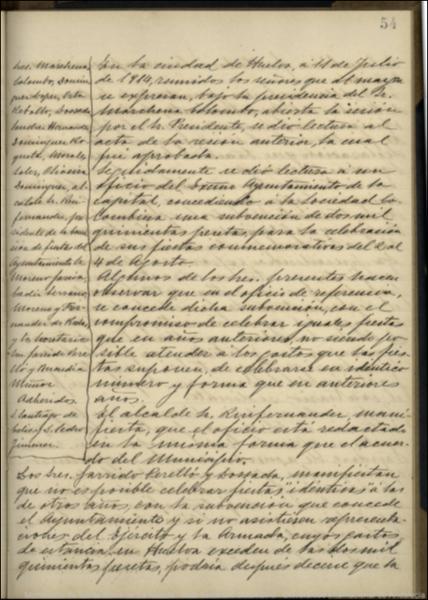 54
Sres. Marchena
Colombo, Domín-
guez López, Orta
Rebollo, Dossada
Hernández
Domínguez Ro-
queta, Morales
Soler, Oliveira
Domínguez, al-
calde Sr. Quij-
fernández, pre-
sidente de la comi-
sión de fiestas del
Ayuntamiento Sr.
Moreno García
badía Serrano,
Moreno y Fer-
nández de Roda,
y los Secretarios
Sres. Garrido Pere-
lló y Buendía
Muñoz
Adheridos
Santiago de
Solís y S. Pedro
Jimenez.
En la ciudad de Huelva, á 11 de Julio
de 1914, reunidos los señores que al margen
se expresan, bajo la presidencia del Sr.
Marchena Colombo, abierta la sesión
por el Sr. Presidente, se dió lectura al
acta de la sesión anterior, la cual
fué aprobada.
Seguidamente se dió lectura á un
oficio del Excmo Ayuntamiento de la
capital, concediendo á la Sociedad Co-
lombina una subvención de dos mil
quinientas pesetas, para la celebración
de sus fiestas conmemorativas del 2 al
4 de Agosto.
Algunos de los Sres. presentes hacen
observar que en el oficio de referencia,
se concede dicha subvención, con el
compromiso de celebrar iguales fiestas
que en años anteriores, no siendo po-
sible atender á los gastos que las fies-
tas suponen, de celebrarse en idéntico
número y forma que en anteriores
años.
El alcalde Sr. Quijfernández, mani-
fiesta, que el oficio está redactado
en la misma forma que el acuer-
do del Municipio.
Los Sres. Garrido Perelló y Dossada, manifiestan
que no es posible celebrar fiestas "idénticas" á las
de otros años, con la subvención que concede
el Ayuntamiento y si no asistiesen representa-
ciones del Ejército y la Armada, cuyos gastos
de estancia en Huelva exceden de las dos mil
quinientas pesetas, podría después decirse que la